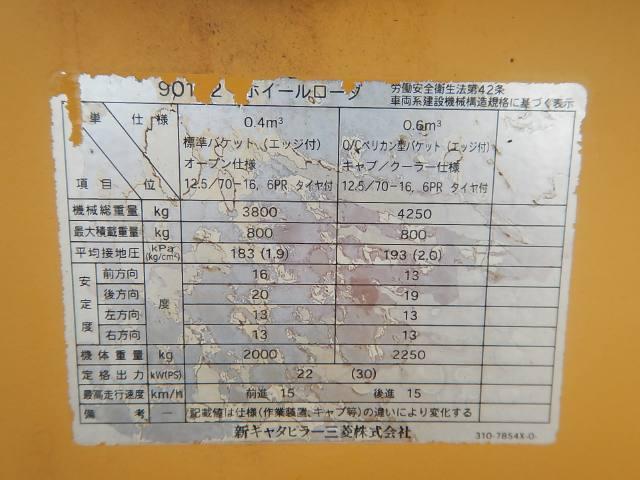 901 2 ホイールローダ
労働安全衛生法第42条
車両系建設機械構造規格に基づく表示
単 仕様 0.4m³ 0.6m³
標準バケット (エッジ付) O/Cペリカン型バケット (エッジ付)
オープン仕様 キャブ/クーラー仕様
項目 位 12.5/70-16, 6PR タイヤ付 12.5/70-16, 6PR タイヤ付
機械総重量 kg 3800 4250
最大積載重量 kg 800 800
平均接地圧 kPa (kg/cm²) 183 (1.9) 193 (2.0)
安定度 前方向 度 16 13
後方向 20 19
左方向 13 13
右方向 13 13
機体重量 kg 2000 2250
定格出力 kW(PS) 22 (30)
最高走行速度 km/H 前進 15 後進 15
備考 — (記載値は仕様(作業装置、キャブ等)の違いにより変化する
新キャタピラー三菱株式会社
310-7854X-0